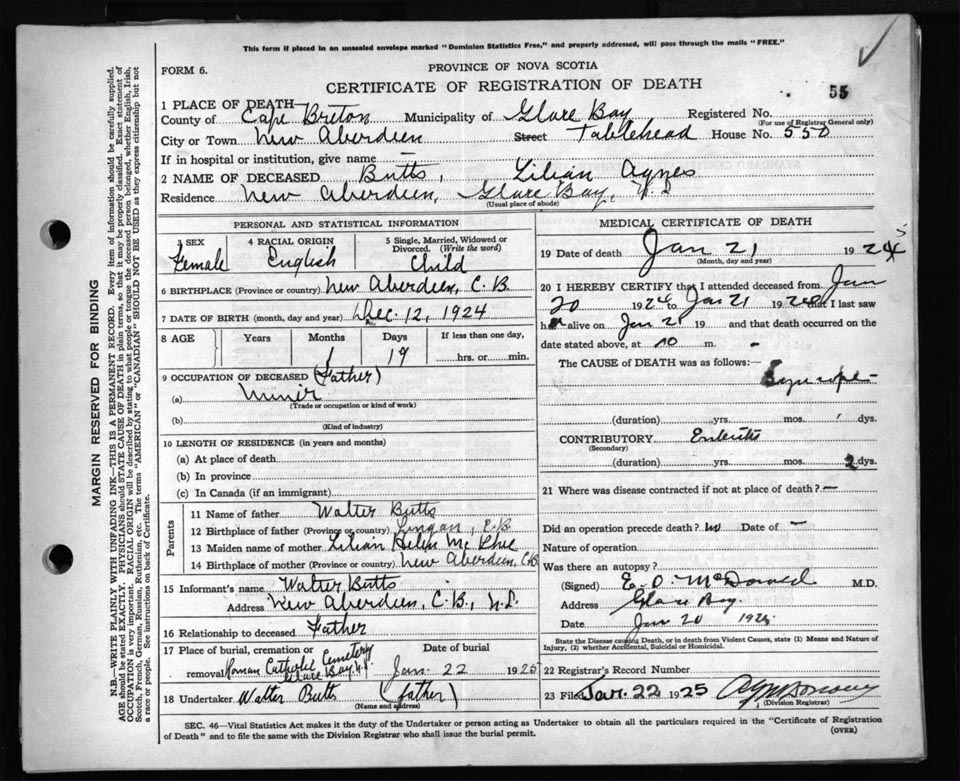 This form if placed in an unsealed envelope marked "Dominion Statistics Free," and properly addressed, will pass through the mails "FREE."
FORM 6.
PROVINCE OF NOVA SCOTIA
CERTIFICATE OF REGISTRATION OF DEATH
55
1 PLACE OF DEATH
County of Cape Breton Municipality of Glace Bay Registered No.
(For use of Registrar General only)
City or Town New Aberdeen Street Tablehead House No. 550
If in hospital or institution, give name
2 NAME OF DECEASED Butts, Lilian Agnes
Residence New Aberdeen, Glace Bay,
(Usual place of abode)
PERSONAL AND STATISTICAL INFORMATION
3 SEX 4 RACIAL ORIGIN 5 Single, Married, Widowed or Divorced. (Write the word)
Female English Child
6 BIRTHPLACE (Province or country) New Aberdeen, C.B.
7 DATE OF BIRTH (month, day and year) Dec. 12, 1924
8 AGE Years Months Days If less than one day,
1 19 hrs. or min.
9 OCCUPATION OF DECEASED (Father)
(a) Miner
(Trade or occupation or kind of work)
(b)
(Kind of industry)
10 LENGTH OF RESIDENCE (in years and months)
(a) At place of death
(b) In province
(c) In Canada (if an immigrant)
Parents
11 Name of father Walter Butts
12 Birthplace of father (Province or country) Lingan, C.B.
13 Maiden name of mother Lilian Helen McPhee
14 Birthplace of mother (Province or country) New Aberdeen, C.B.
15 Informant's name Walter Butts
Address New Aberdeen, C.B., N.S.
16 Relationship to deceased Father
17 Place of burial, cremation or removal Date of burial
Roman Catholic Cemetery Glace Bay, N.S. Jan. 22 1925
18 Undertaker Walter Butts (father)
(Name and address)
MEDICAL CERTIFICATE OF DEATH
19 Date of death Jan 21 192
(Month, day and year)
20 I HEREBY CERTIFY that I attended deceased from Jan
20 1924 to Jan 21 192 that I last saw
h alive on Jan 2 19 and that death occurred on
date stated above, at 10 m.
The CAUSE of DEATH was as follows:
Syncope
(duration) yrs. mos. dys.
CONTRIBUTORY Enteritis
(Secondary)
(duration) yrs. mos. 2 dys.
21 Where was disease contracted if not at place of death? —
Did an operation precede death? No Date of —
Nature of operation
Was there an autopsy?
(Signed) McDonald M.D.
Address Glace Bay
Date Jan 20 192
State the Disease causing Death, or in death from Violent Causes, state (1) Means and Nature of Injury, (2) whether Accidental, Suicidal or Homicidal.
22 Registrar's Record Number
23 Filed Jan. 22 1925
(Division Registrar)
SEC. 46—Vital Statistics Act makes it the duty of the Undertaker or person acting as Undertaker to obtain all the particulars required in the "Certificate of Registration
of Death" and to file the same with the Division Registrar who shall issue the burial permit.
(OVER)
MARGIN RESERVED FOR BINDING
N.B.—WRITE PLAINLY WITH UNFADING INK—THIS IS A PERMANENT RECORD. Every item of information should be carefully supplied.
AGE should be stated EXACTLY. PHYSICIANS should STATE CAUSE OF DEATH in plain terms, so that it may be properly classified. Exact statement of
OCCUPATION is very important. RACIAL ORIGIN will be described by stating to what people or tongue the deceased person belonged, whether English, Irish,
Scotch, French, German, Russian, Ruthenian, etc. The terms "AMERICAN" or "CANADIAN" SHOULD NOT BE USED as they express citizenship but not
a race or people. See instructions on back of Certificate.